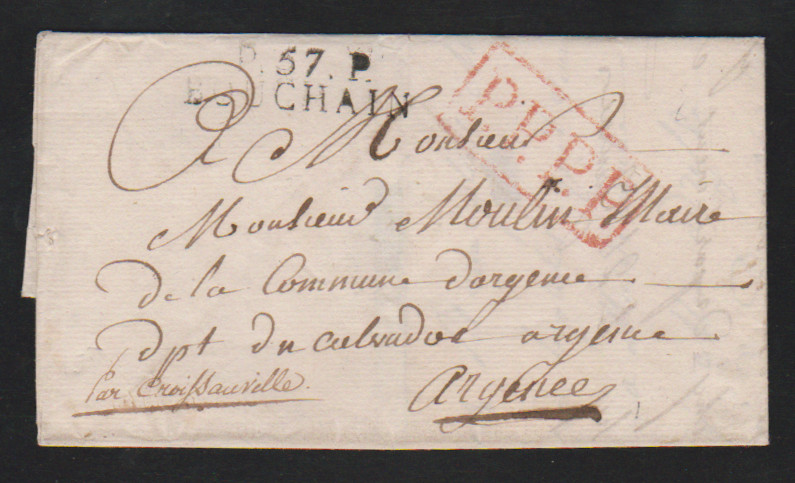 P. 57. P.
BOUCHAIN
P.P.P.P.
A Monsieur
Monsieur Moulin Maire
de la Commune d'argence
dpt du calvados argence
Par Croissanville.
Argence